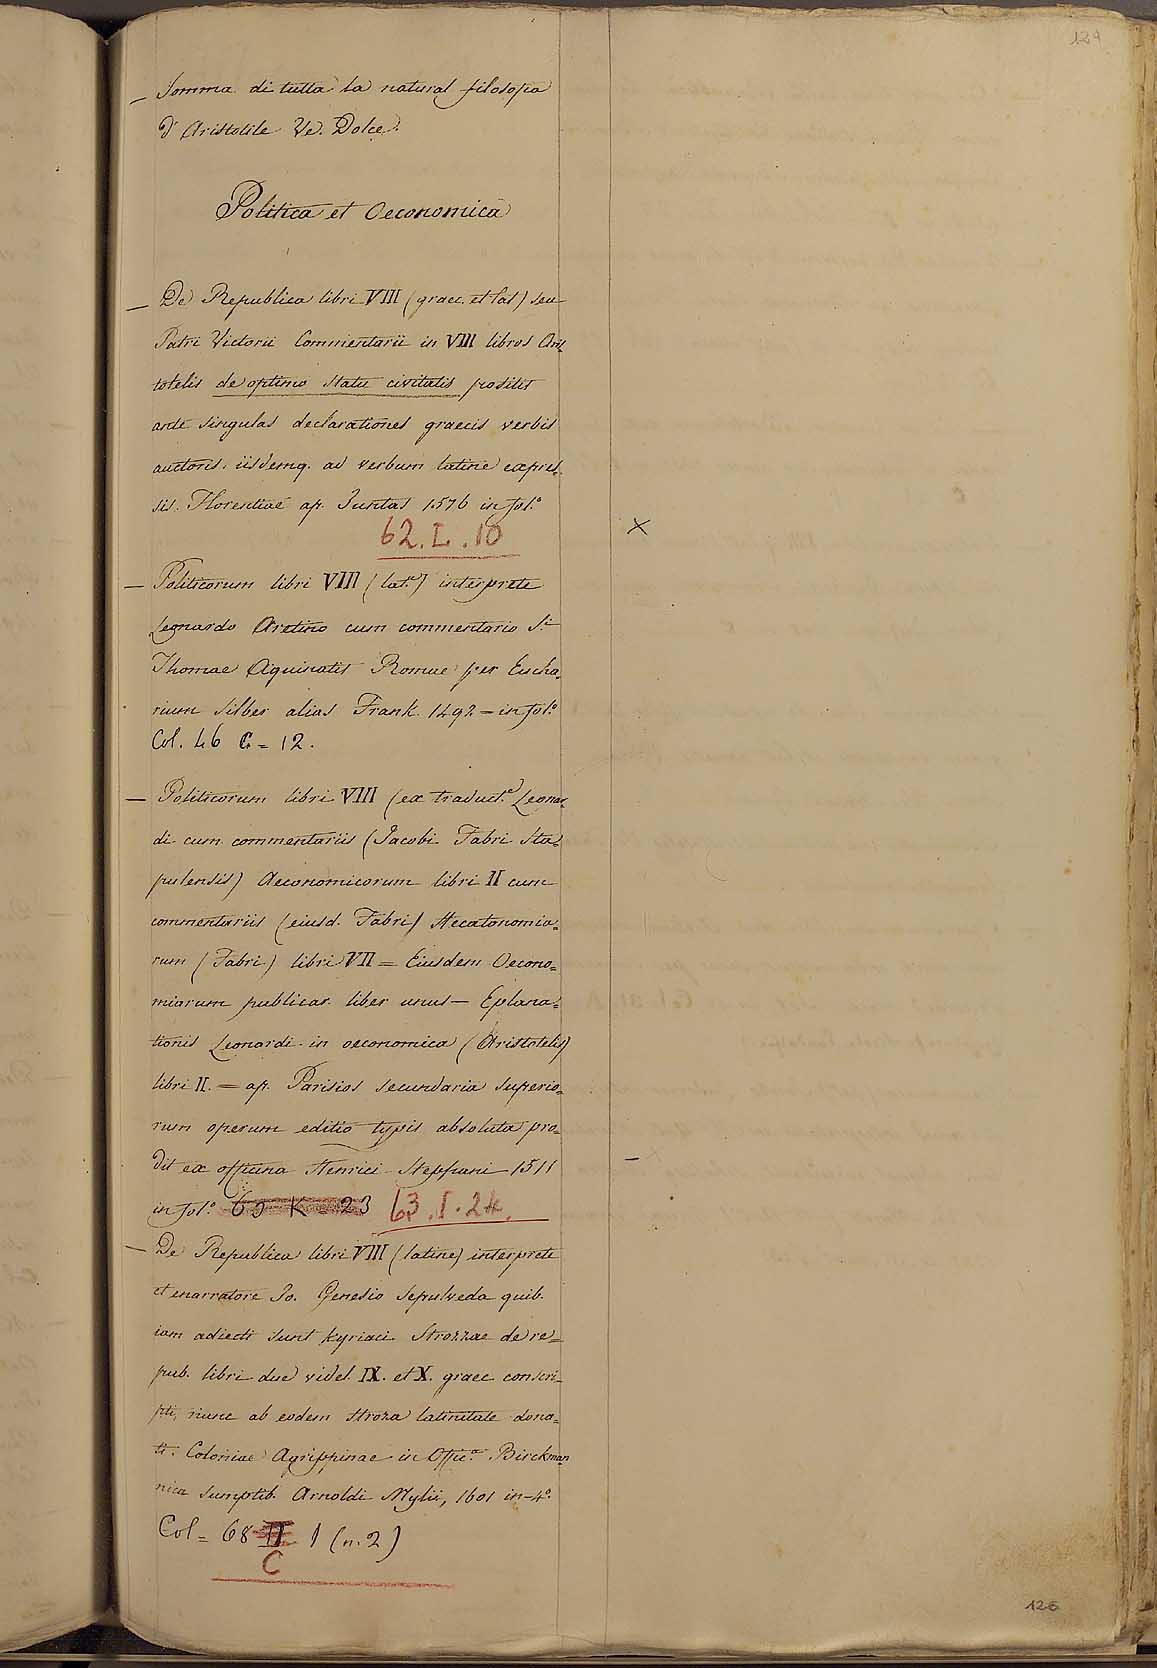 124
– Somma di tutta la natural filosofia
d'Aristotile Ve. Dolce.
Politica et Oeconomica
– De Republica libri VIII (graec. et lat) seu
Petri Victorii Commentarii in VIII libros Aris-
totelis de optimo statu civitatis positis
ante singulas declarationes graecis verbis
auctoris, iisdemq. ad verbum latine expres-
sis. Florentiae ap. Juntas 1576 in fol.º
62. L. 10
×
– Politicorum libri VIII (lat.e) interprete
Legnardo Aretino cum commentario S.ti
Thomae Aquinatis Romae per Eucha-
rium Silber alias Frank. 1492 = in fol.º
Col. 46 C = 12.
– Politicorum libri VIII (ex traduct.e Leonar-
di cum commentariis (Jacobi Fabri Sta-
pulensis) Aeconomicorum libri II cum
commentariis (eiusd. Fabri) Hecatonomia-
rum (Fabri) libri VII = Eiusdem Oecono=
miarum publicar. liber unus – Eplana=
tionis Leonardi in oeconomica (Aristotelis)
libri II. = ap. Parisios secundaria superio=
rum operum editio typis absoluta pro=
dit ex officina Henrici Stephani 1511
in fol.º 65 K = 23 63. I. 24.
– De Republica libri VIII (latine) interprete
et enarratore Jo. Genesio Sepulveda quib.
iam adiecti sunt Kyriaci Strozzae de re=
pub. libri duo videl. IX. et X. graec conscri-
pti, nunc ab eodem Stroza latinitate dona=
ti. Coloniae Agrippinae in Offic.a Birckman
nica sumptib. Arnoldi Mylii, 1601 in-4º.
Col = 68 II 1 (n. 2)
C